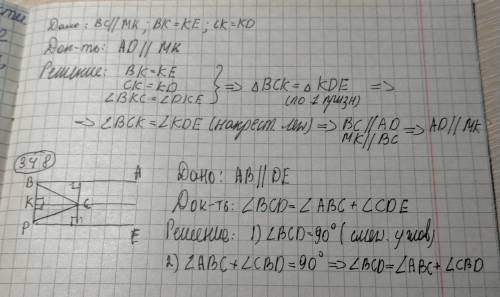 Дано: BC//MK; BK=KE; CK=KD
Док-ть: AD//MK
Решение: BK=KE
CK=KD
∠BKC=∠DKE
} => △BCK=△KDE =>
(по 1 призн)
=> ∠BCK=∠KDE (накрест. леж) => BC//AD
MK//BC
=> AD//MK
348
Дано: AB//DE
Док-ть: ∠BCD=∠ABC+∠CDE
Решение: 1) ∠BCD=90° (смеж. углов)
2) ∠ABC+∠CBD=90° => ∠BCD=∠ABC+∠CBD
B
A
K
C
P
E